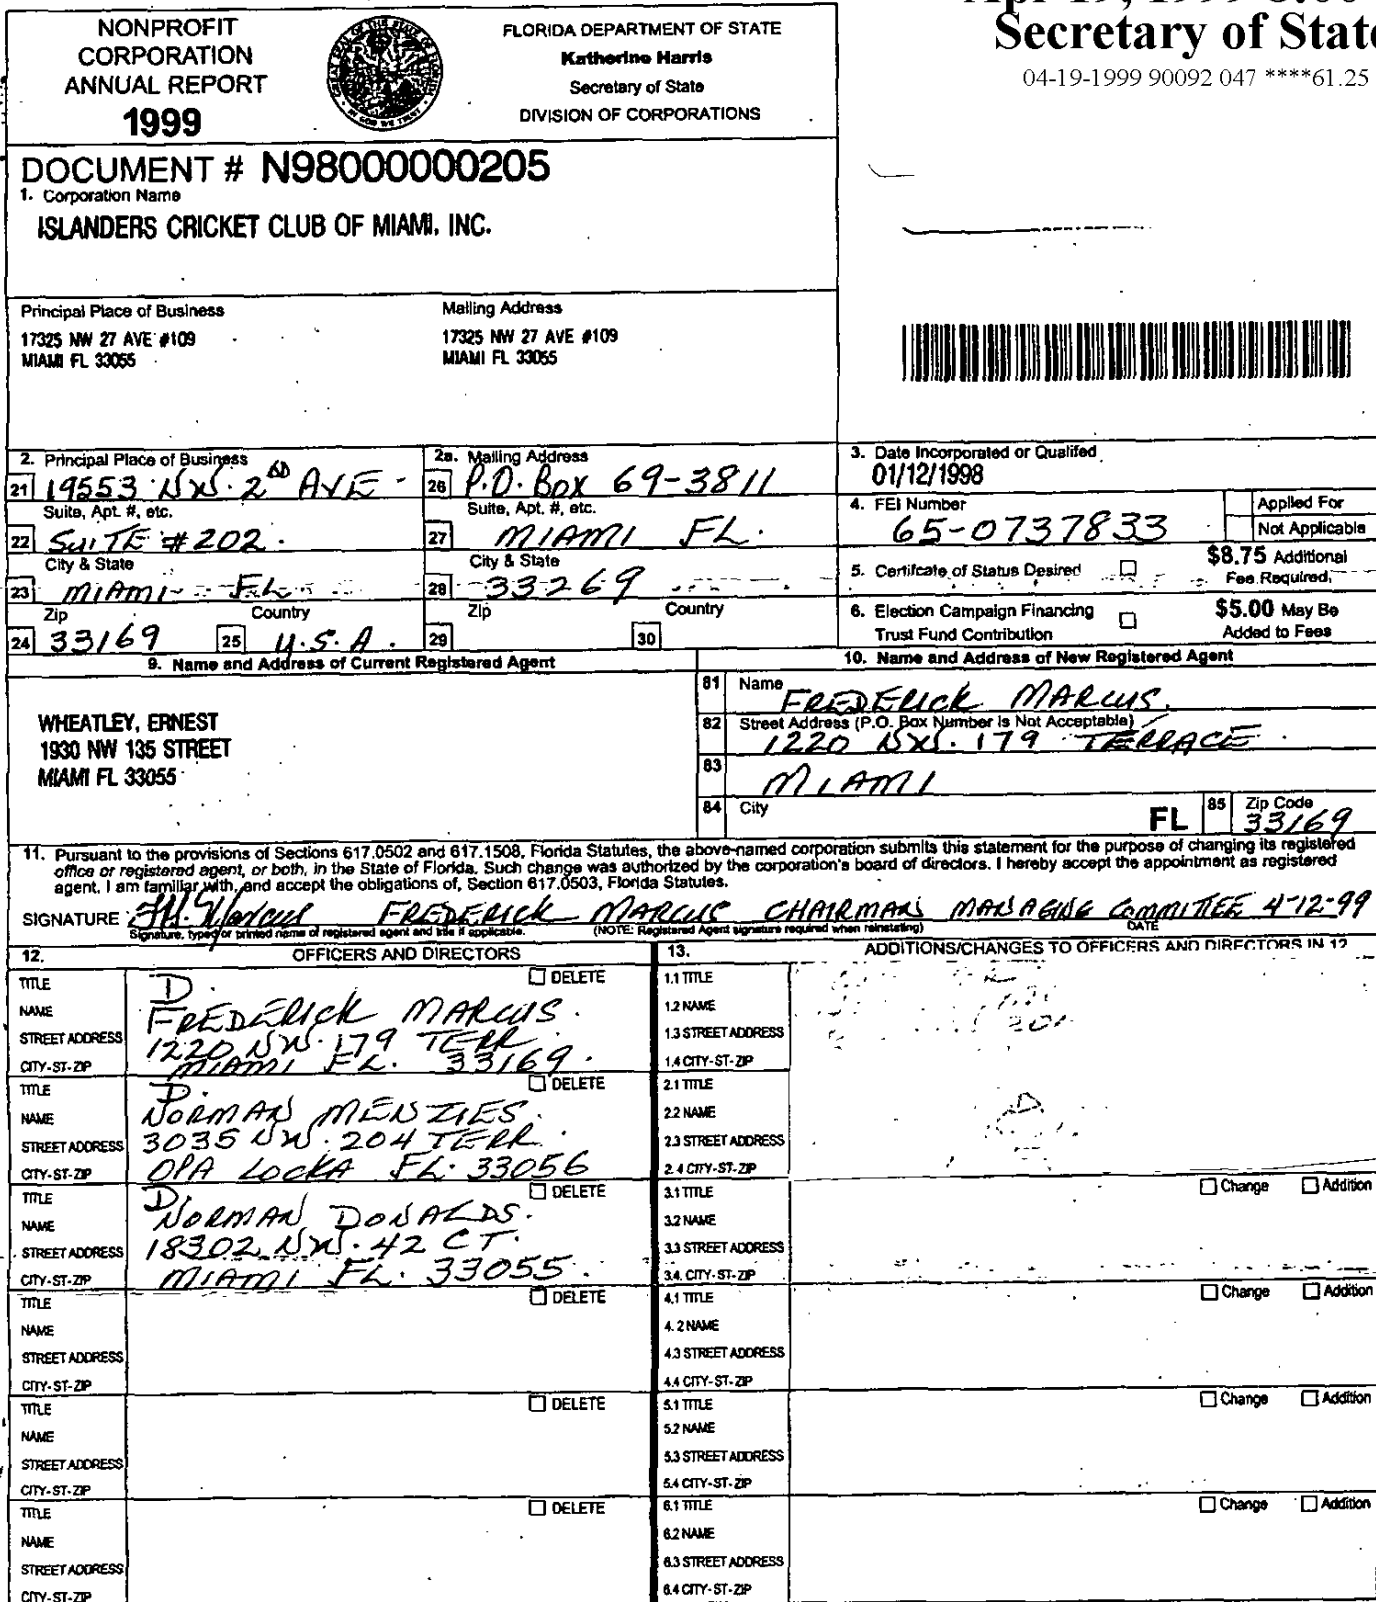 NONPROFIT
CORPORATION
ANNUAL REPORT
1999
FLORIDA DEPARTMENT OF STATE
Katherine Harris
Secretary of State
DIVISION OF CORPORATIONS
Secretary of State
04-19-1999 90092 047 ****61.25
DOCUMENT # N98000000205
1. Corporation Name
ISLANDERS CRICKET CLUB OF MIAMI, INC.
Principal Place of Business
17325 NW 27 AVE #109
MIAMI FL 33055
Mailing Address
17325 NW 27 AVE #109
MIAMI FL 33055
2. Principal Place of Business
21 19553 N.W. 2ND AVE
Suite, Apt. #, etc.
22 SUITE #202.
City & State
23 MIAMI FL
Zip Country
24 33169 25 U.S.A.
2a. Mailing Address
26 P.O. Box 69-3811
Suite, Apt. #, etc.
27 MIAMI FL.
City & State
28 33269
Zip Country
29 30
3. Date Incorporated or Qualifed
01/12/1998
4. FEI Number
65-0737833
Applied For
Not Applicable
5. Certifcate of Status Desired
$8.75 Additional
Fee Required
6. Election Campaign Financing
Trust Fund Contribution
$5.00 May Be
Added to Fees
9. Name and Address of Current Registered Agent
WHEATLEY, ERNEST
1930 NW 135 STREET
MIAMI FL 33055
10. Name and Address of New Registered Agent
81 Name
FREDERICK MARCUS.
82 Street Address (P.O. Box Number is Not Acceptable)
1220 N.W. 179 TERRACE.
83
MIAMI
84 City FL 85 Zip Code
33169
11. Pursuant to the provisions of Sections 617.0502 and 617.1508, Florida Statutes, the above-named corporation submits this statement for the purpose of changing its registered
office or registered agent, or both, in the State of Florida. Such change was authorized by the corporation's board of directors. I hereby accept the appointment as registered
agent. I am familiar with, and accept the obligations of, Section 617.0503, Florida Statutes.
SIGNATURE F. Marcus FREDERICK MARCUS CHAIRMAN MANAGING COMMITTEE 4-12-99
Signature, typed or printed name of registered agent and title if applicable. (NOTE: Registered Agent signature required when reinstating) DATE
12. OFFICERS AND DIRECTORS
TITLE D. DELETE
NAME FREDERICK MARCUS.
STREET ADDRESS 1220 N.W. 179 TERR
CITY-ST-ZIP MIAMI FL. 33169.
TITLE D. DELETE
NAME NORMAN MENZIES.
STREET ADDRESS 3035 N.W. 204 TERR.
CITY-ST-ZIP OPA LOCKA FL. 33056
TITLE D. DELETE
NAME NORMAN DONALDS.
STREET ADDRESS 18302 N.W. 42 CT.
CITY-ST-ZIP MIAMI FL. 33055.
TITLE DELETE
NAME
STREET ADDRESS
CITY-ST-ZIP
TITLE DELETE
NAME
STREET ADDRESS
CITY-ST-ZIP
TITLE DELETE
NAME
STREET ADDRESS
CITY-ST-ZIP
13. ADDITIONS/CHANGES TO OFFICERS AND DIRECTORS IN 12
1.1 TITLE
1.2 NAME
1.3 STREET ADDRESS
1.4 CITY-ST-ZIP
2.1 TITLE
2.2 NAME
2.3 STREET ADDRESS
2.4 CITY-ST-ZIP
3.1 TITLE Change Addition
3.2 NAME
3.3 STREET ADDRESS
3.4. CITY-ST-ZIP
4.1 TITLE Change Addition
4.2 NAME
4.3 STREET ADDRESS
4.4 CITY-ST-ZIP
5.1 TITLE Change Addition
5.2 NAME
5.3 STREET ADDRESS
5.4 CITY-ST-ZIP
6.1 TITLE Change Addition
6.2 NAME
6.3 STREET ADDRESS
6.4 CITY-ST-ZIP